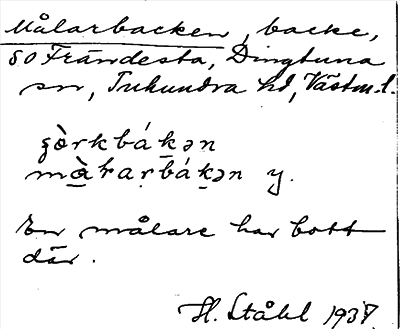 Målarbacken, backe,
SO Frändesta, Dingtuna
sn, Tuhundra hd, Västm. l.
bákən
màlarbákən y.
En målare har bott
där.
H. Ståhl 1937